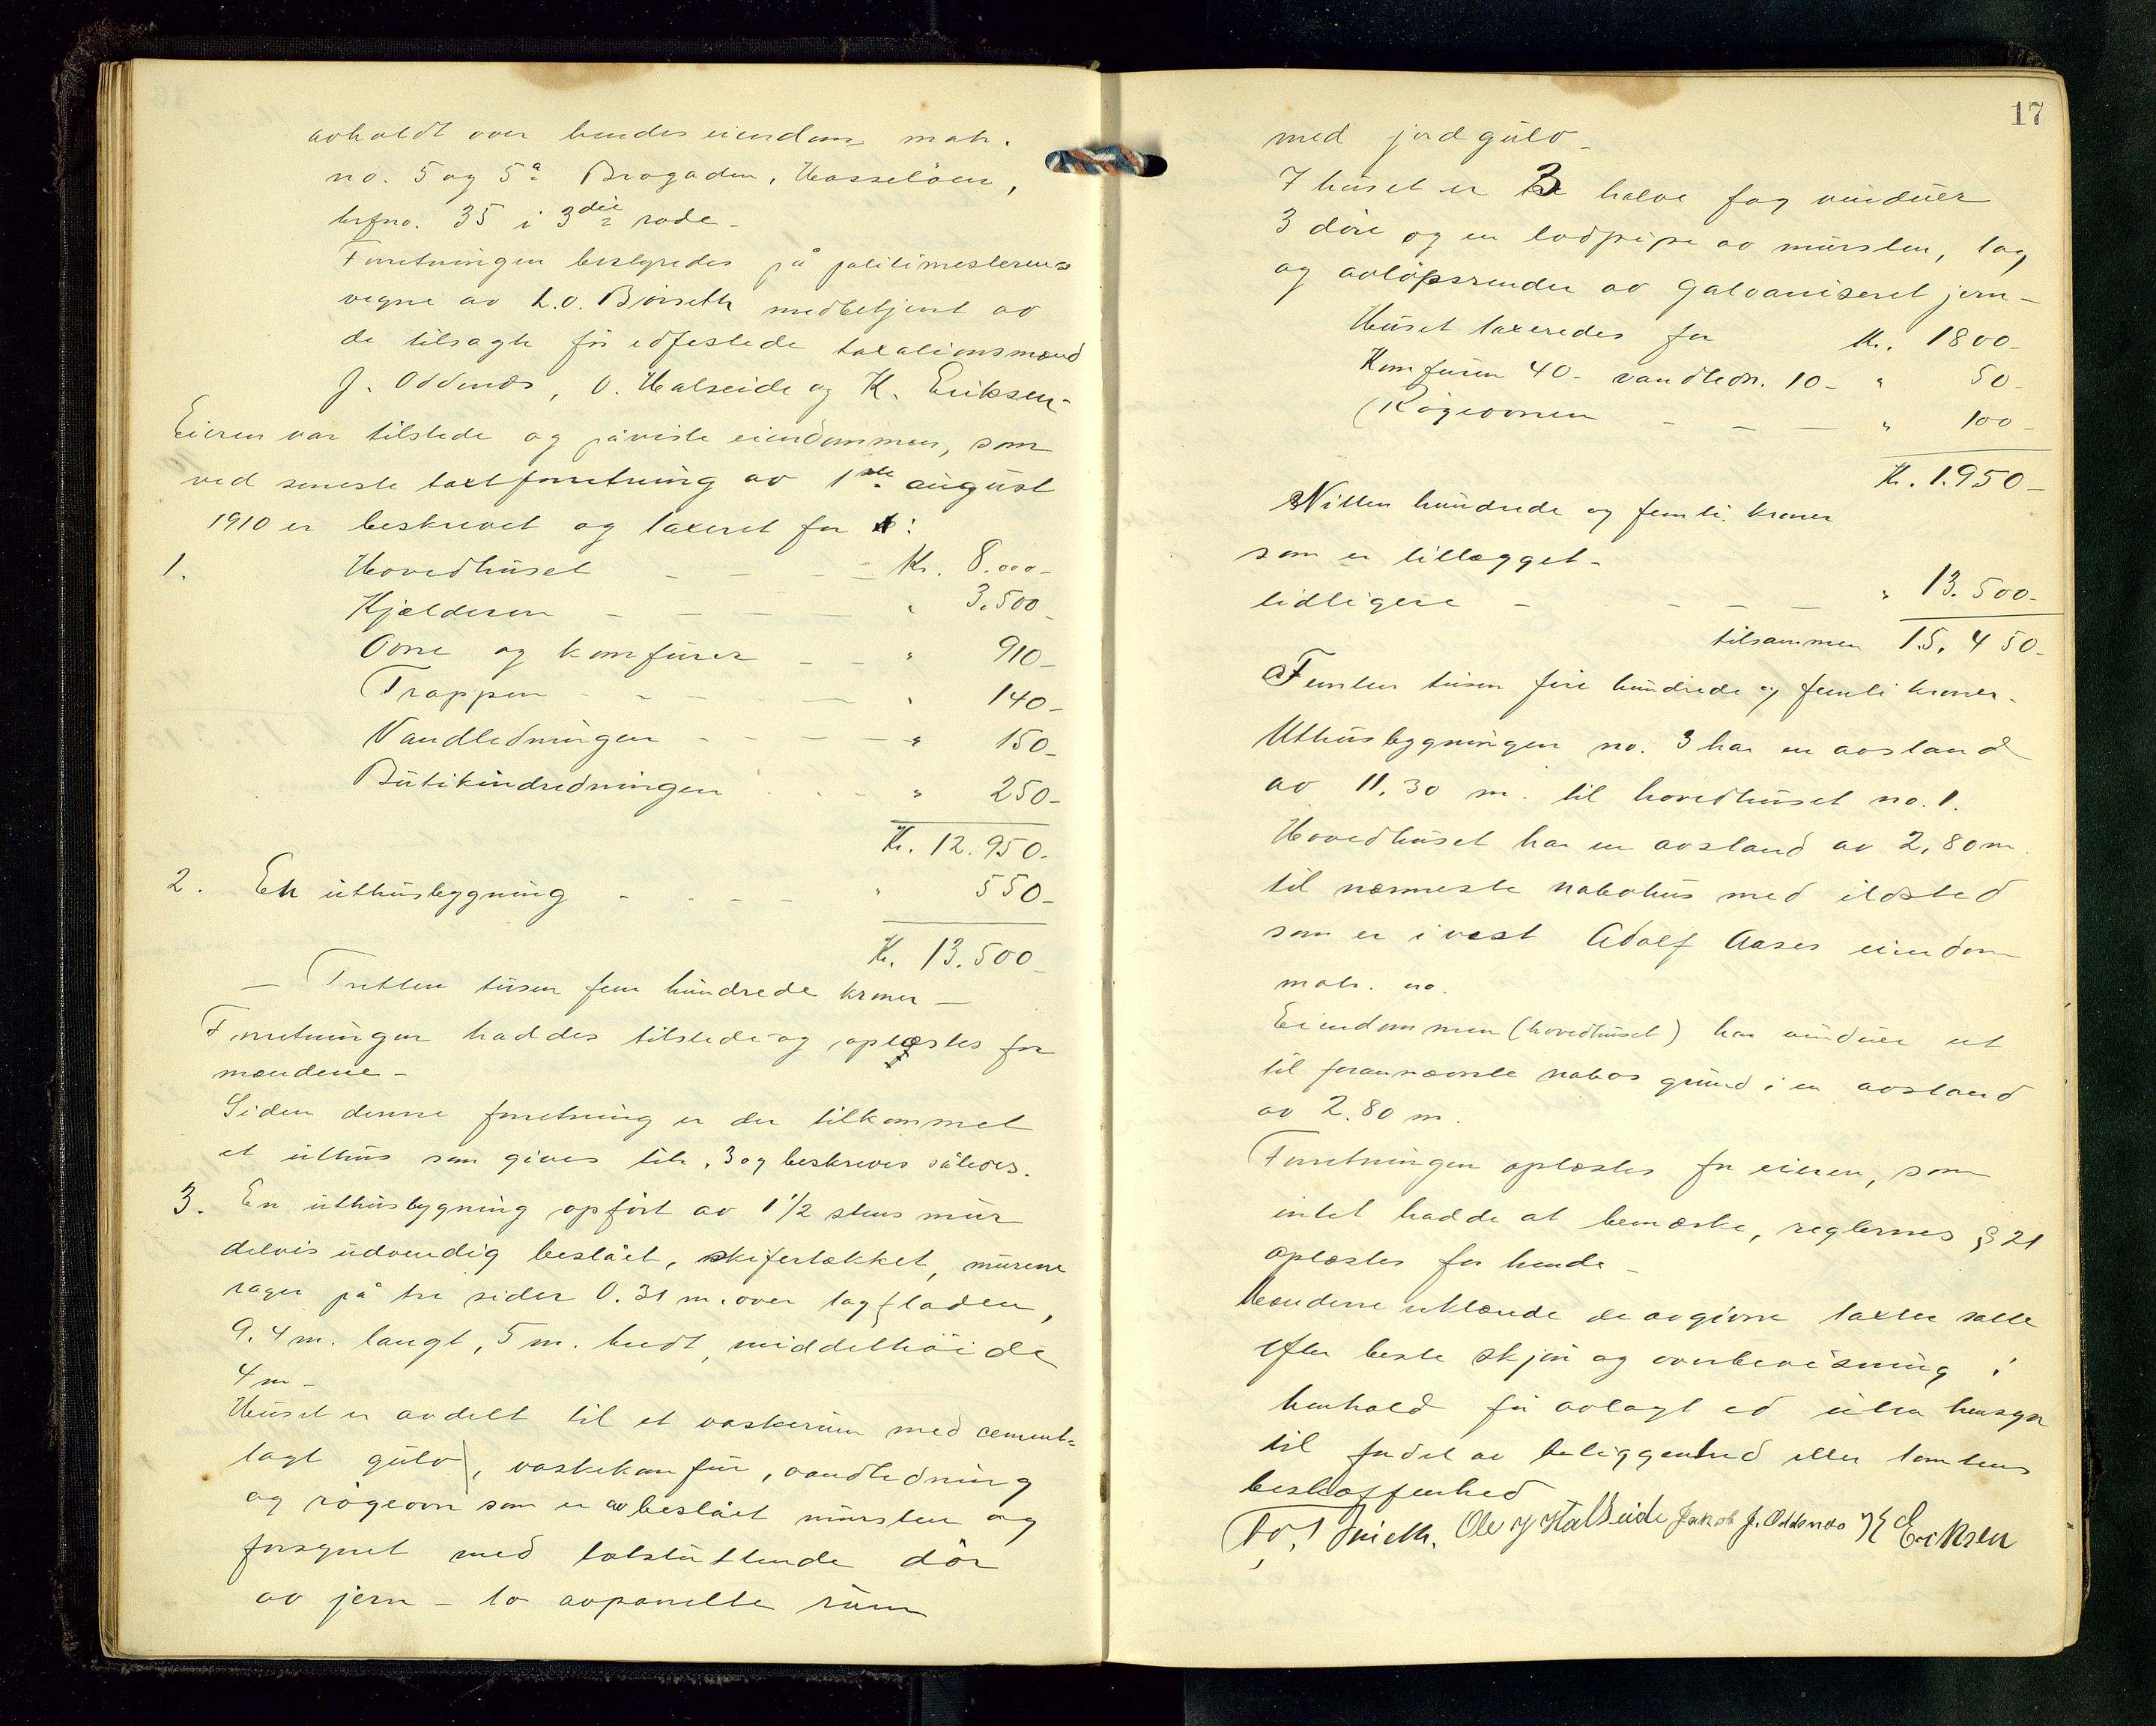 avholdt over hendes eiendom matr.
no. 5 og 5a Brogaden, Hasseløen,
brfno. 35 i 3die rode -
Forretningen bestyredes på politimesterens
vegne av L.O. Bøiseth medbetjent av
de tilsagte før edfestede taxationsmænd
J. Oddenæs, O. Halseide og K. Eriksen -
Eieren var tilstede og påviste eiendommen, som
ved seneste taxtforretning av 1ste august
1910 er beskrevet og taxeret for :
1. Hovedhuset - - - - Kr. 8.000-
Kjælderen - - - - " 3.500-
Ovne og komfurer - - " 910-
Trappen - - - - " 140-
Vandledningen - - - - " 150-
Butikindredningen - - - " 250-
Kr. 12.950-
2. En uthusbygning - - - - " 550-
Kr. 13.500-
- Tretten tusen fem hundrede kroner -
Forretningen haddes tilstede og oplæstes for
mændene -
Siden denne forretning er der tilkommet
et uthus som gives litr. 3 og beskrives således.
3. En uthusbygning opført av 1 1/2 stens mur
delvis udvendig beslået, skifertækket, murene
rager på tre sider 0.31 m. over tagfladen,
9.4 m. langt, 5 m. bredt, middelhøide
4 m -
Huset er avdelt til et vaskerum med cement-
lagt gulv, vaskekomfur, vandledning
og røgeovn som er av beslået mursten og
forsynet med tætsluttende dør
av jern - to avpanelte rum
17
med jordgulv -
I huset er 3 halve fag vinduer
3 døre og en lodpipe av mursten, tag
og avløpsrender av galvaniseret jern -
Huset taxeredes for Kr. 1800-
Komfuren 40- vandledn. 10- " 50-
Røgeovnen - - - " 100-
Kr. 1.950-
Nitten hundrede og femti kroner
som er tillægget -
tidligere - - - - " 13.500-
tilsammen 15.450-
Femten tusen fire hundrede og femti kroner -
Uthusbygningen no. 3 har en avstand
av 11.30 m. til hovedhuset no. 1.
Hovedhuset har en avstand av 2,80 m.
til nærmeste nabohus med ildsted
som er i vest Adolf Aases eiendom
matr. no.
Eiendommen (hovedhuset) har vinduer ut
til forannævnte nabos grund i en avstand
av 2.80 m.
Forretningen oplæstes for eieren, som
intet hadde at bemærke, reglernes § 21
oplæstes for hende -
Mændene erklærede de avgivne taxter satte
efter beste skjøn og overbevisning i
henhold før avlagt ed uten hensyn
til fordel av beliggenhed eller tomtens
beskaffenhed
Ole J Halseide Jakob J. Oddenæs K Eriksen